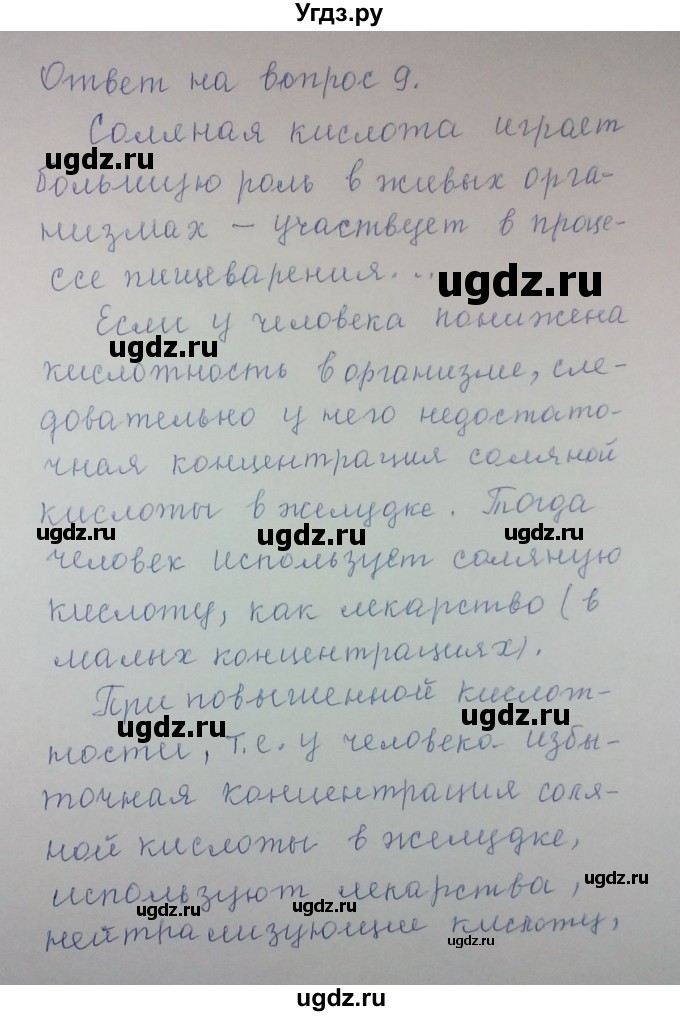 Угдз.ру
Ответ на вопрос 9.
Соляная кислота играет
ugdz.ru
большую роль в живых орга-
низмах – участвует в проце-
ссе пищеварения...
ugdz.ru
Если у человека понижена
ugdz.ru
кислотность в организме, сле-
довательно у него недостато-
чная концентрация соляной
кислоты в желудке. Тогда
ugdz.ru ugdz.ru ugdz.ru
человек использует соляную
кислоту, как лекарство (в
малых концентрациях).
При повышенной кислот-
ugdz.ru ugdz.ru
ности, т.е. у человека избы-
точная концентрация соля-
ной кислоты в желудке,
ugdz.ru
используют лекарства,
ugdz.ru ugdz.ru
нейтрализующие кислоту,
ugdz.ru
ugdz.ru